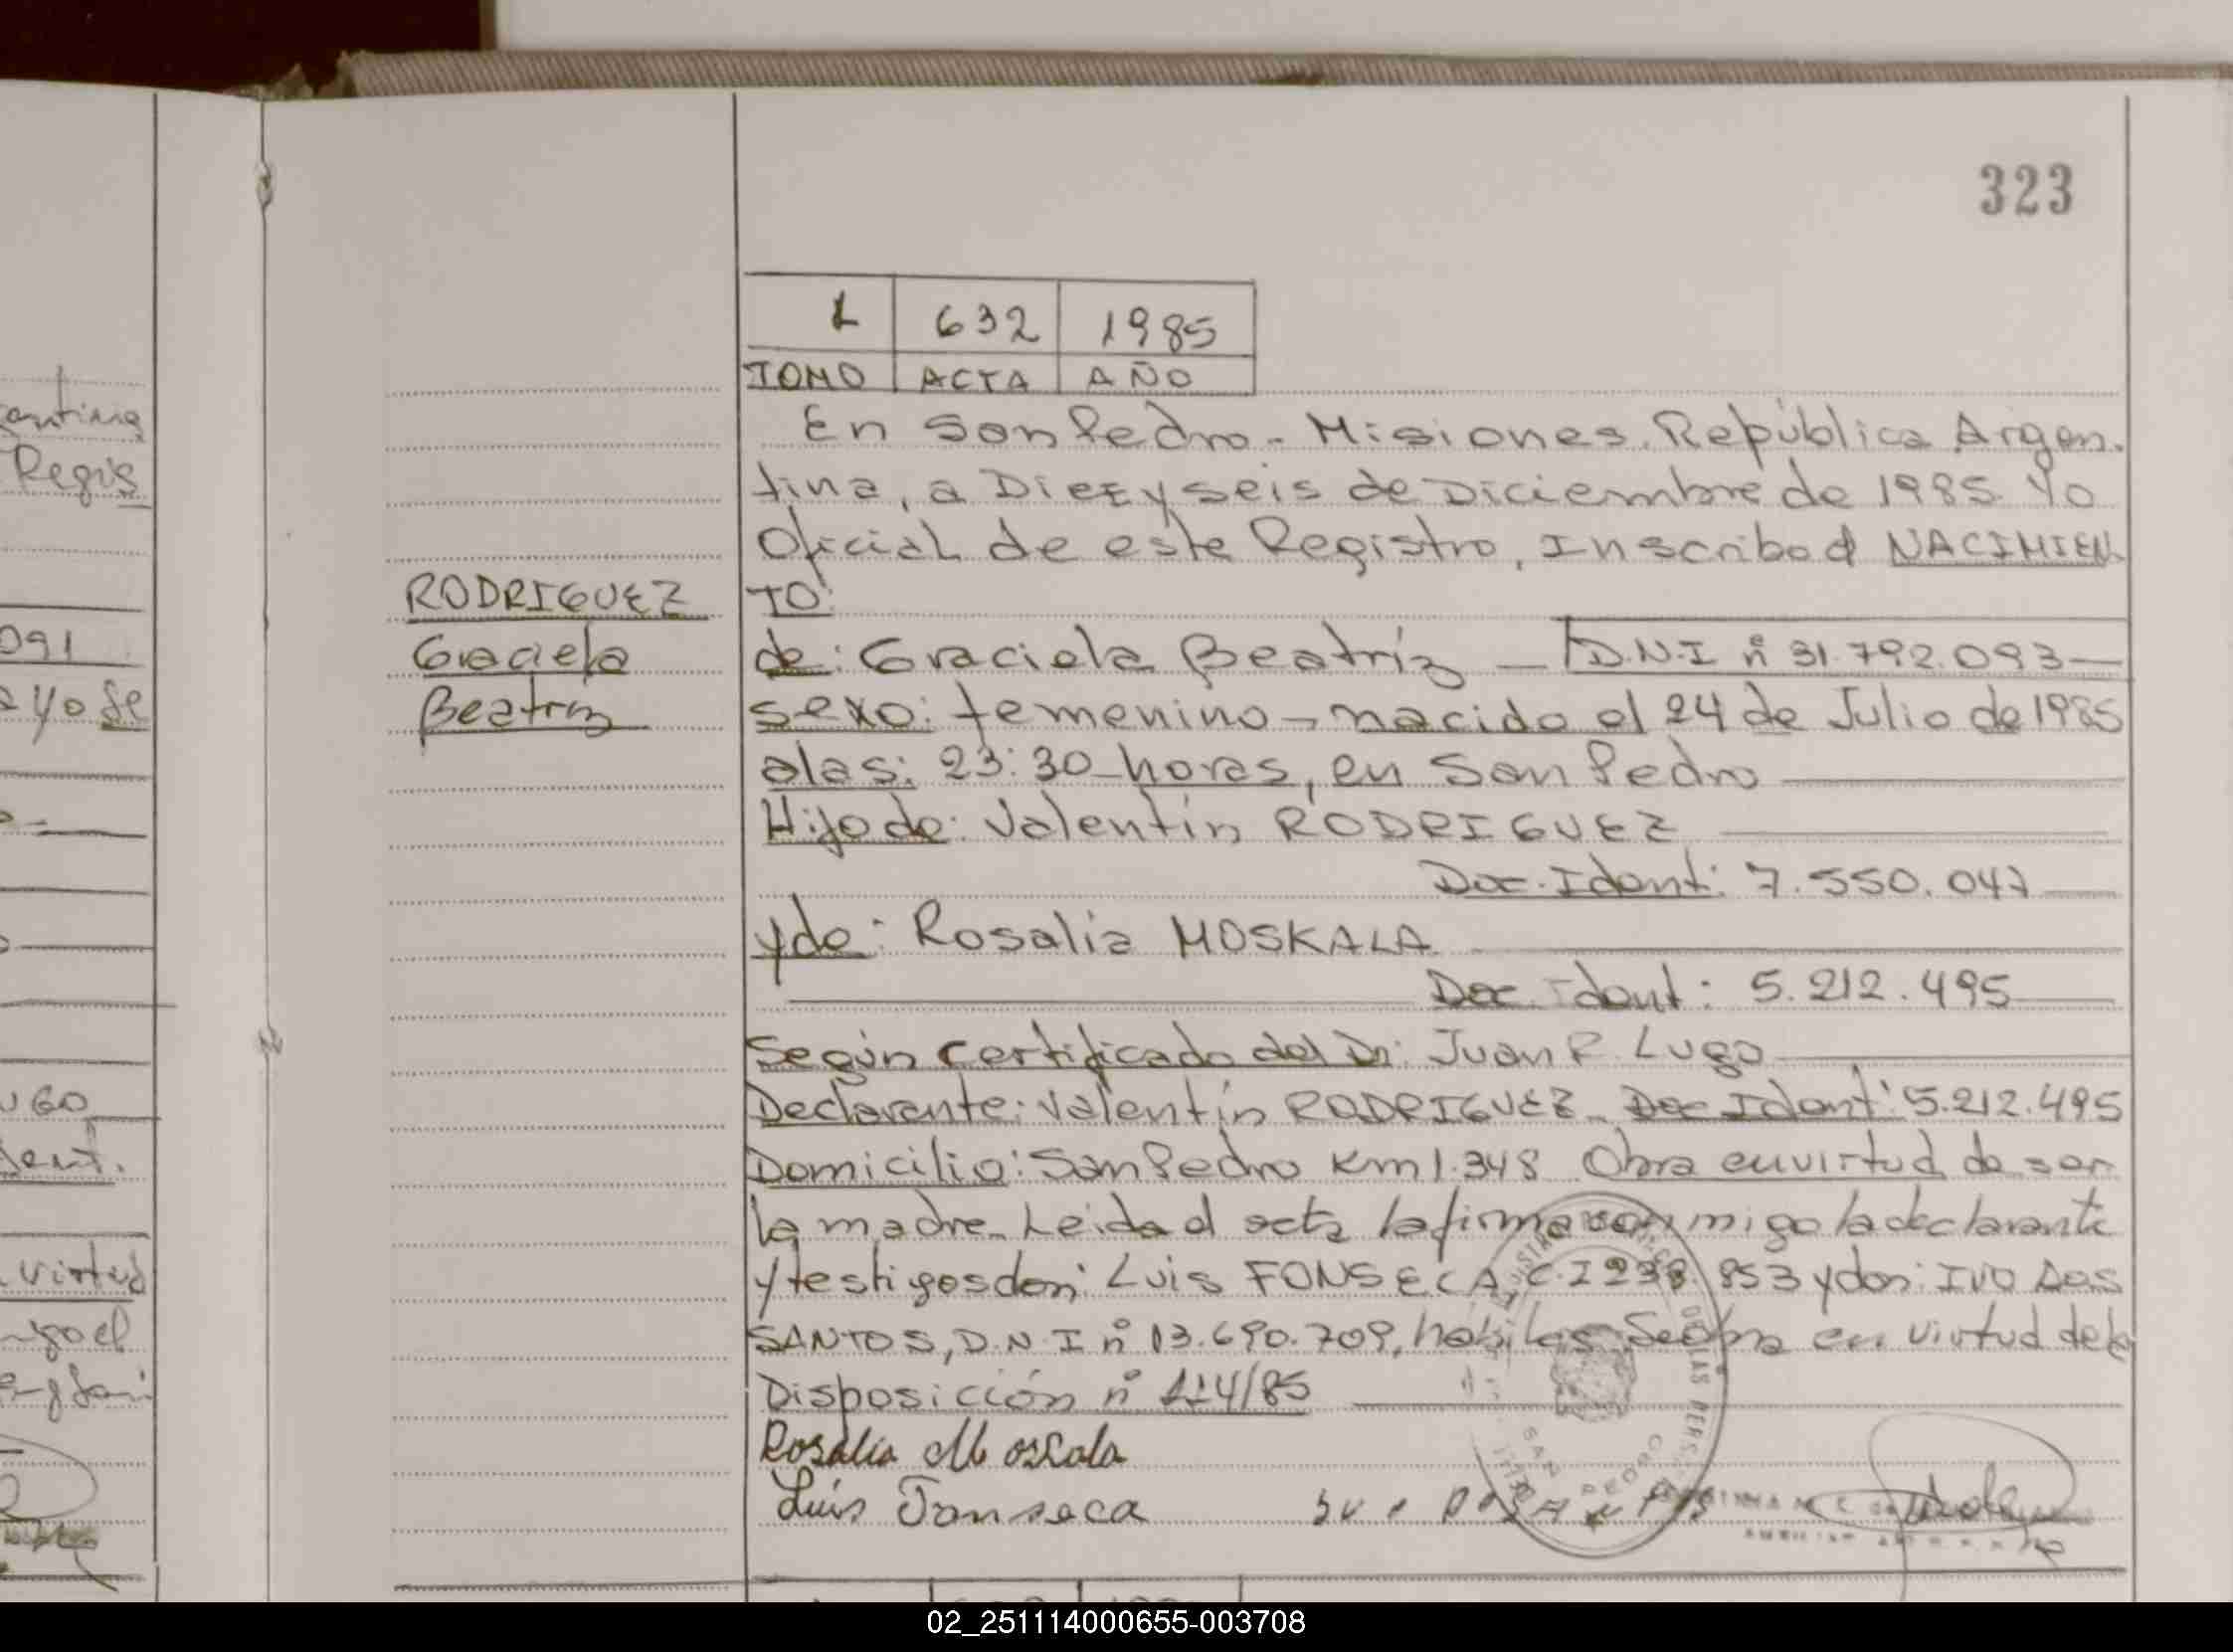 323
L 632 1985
TOMO ACTA AÑO
En San Pedro - Misiones. República Argen-
tina, a Diezyseis de Diciembre de 1985. Yo
Oficial de este Registro, Inscribo el NACIMIEN
TO:
RODRIGUEZ
Graciela
Beatriz
de: Graciela Beatríz — D.N.I nº 31.792.093—
sexo: femenino - nacido el 24 de Julio de 1985
alas: 23:30 horas, en San Pedro
Hijo de: Valentín RODRIGUEZ
Doc. Ident: 7.550.047
yde: Rosalia MOSKALA
Doc. Ident: 5.212.495
Según certificado del Dr: Juan R. Lugo
Declarante: Valentín RODRIGUEZ - Doc Ident: 5.212.495
Domicilio: San Pedro Km 1.348 Obra en virtud de ser
la madre. Leida el acta la firma conmigo la declarante
y testigos don: Luis FONSECA, C.I 238.853 y don: IVO DOS
SANTOS, D.N.I nº 13.690.709, hábiles. Se obra en virtud de la
Disposición nº 114/85
Rosalia Moskala
Luis Fonseca
SAN PEDRO
antina
Regis
091
a yo Se
UGO
dent.
virtud
02_251114000655-003708